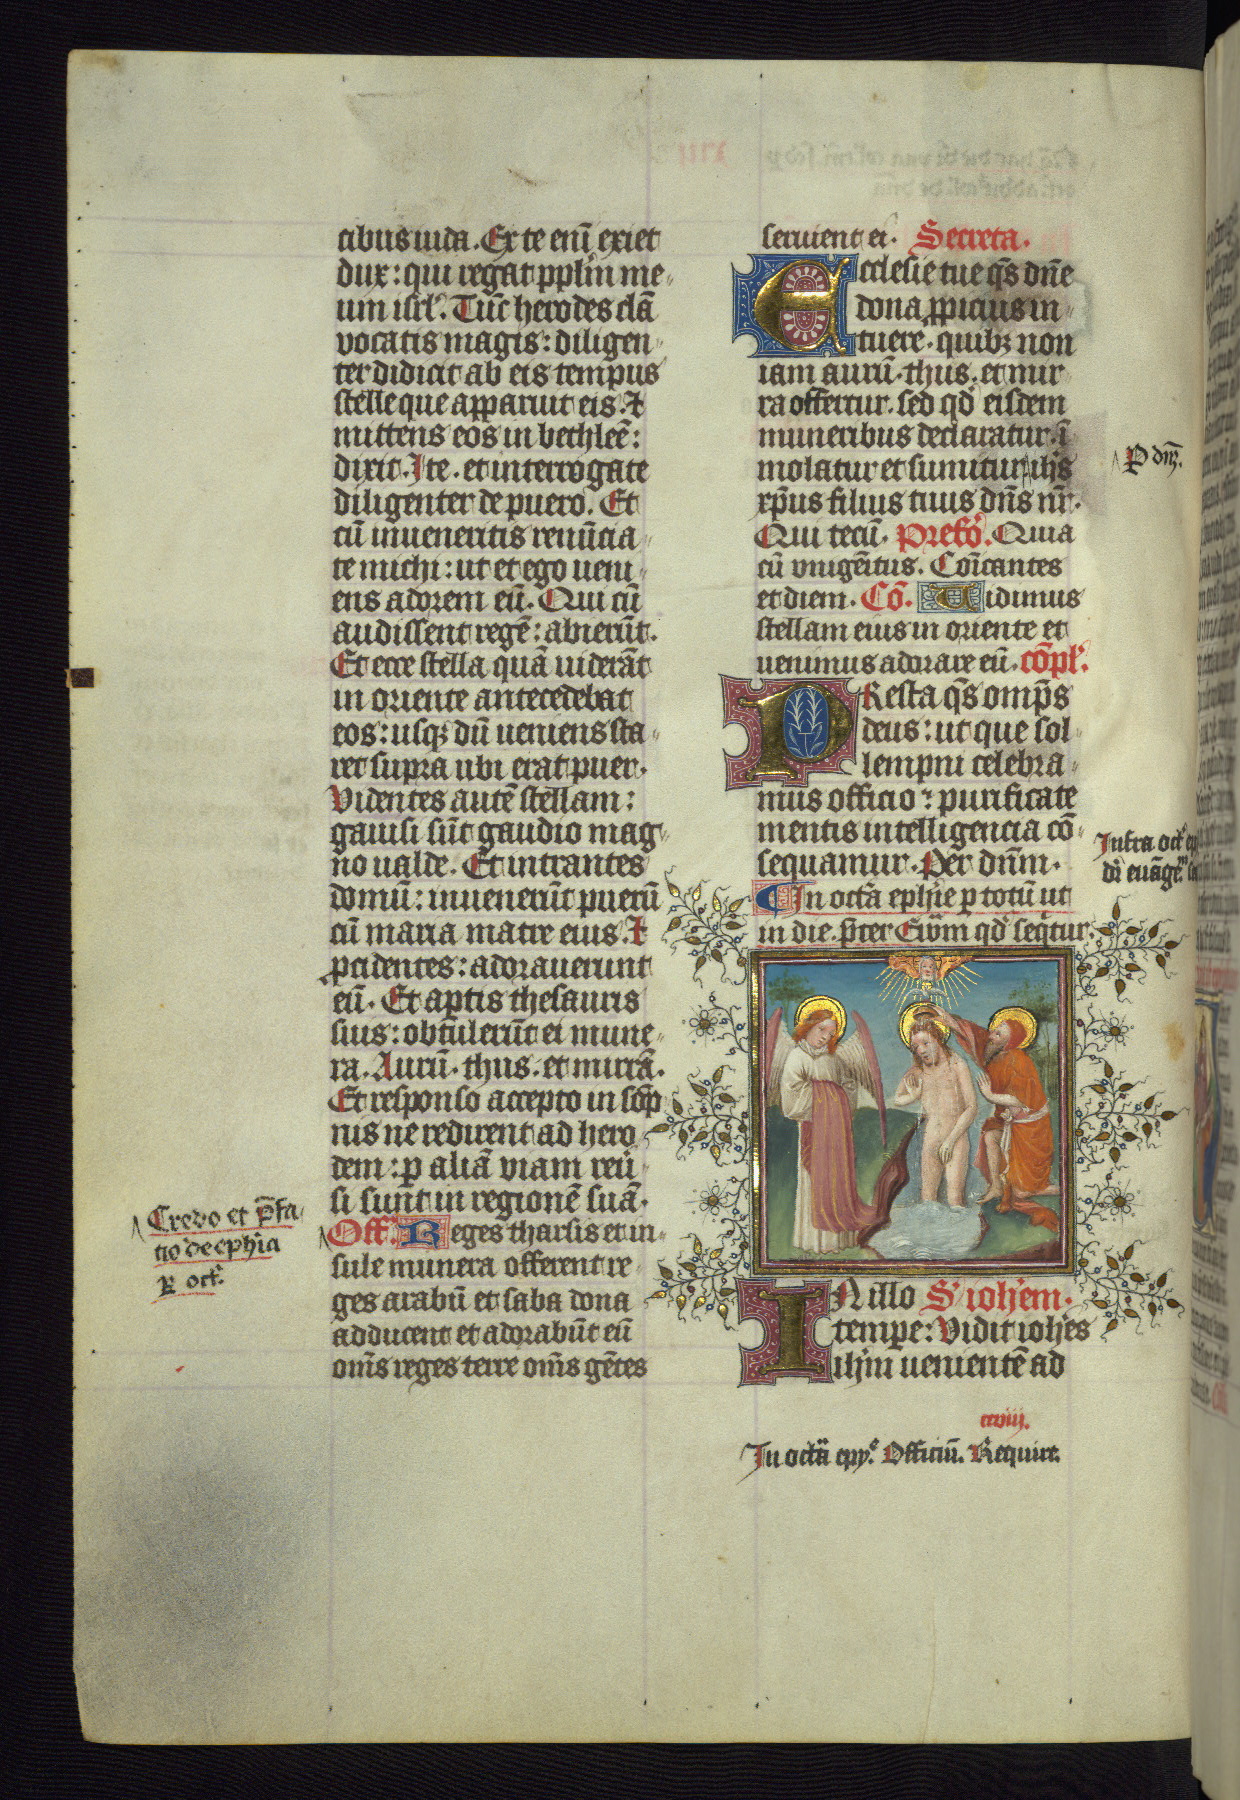 cibus iuda. Ex te eni̅ exiet
dux: qui regat pplm̅ me-
um isrl'. Tu̅c herodes cla̅
vocatis magis: diligen-
ter didicit ab eis tempus
stelle que apparuit eis. Et
mittens eos in bethlee̅:
dixit. Ite. et interrogate
diligenter de puero. Et
cu̅ inueneritis renu̅cia-
te michi: ut et ego ueni-
ens adorem eu̅. Qui cu̅
audissent rege̅: abieru̅t.
Et ecce stella qua̅ uidera̅t
in oriente antecedebat
eos: usq; du̅ ueniens sta-
ret supra ubi erat puer.
Videntes aute̅ stellam:
gauisi su̅t gaudio mag-
no ualde. Et intrantes
domu̅: inueneru̅t pueru̅
cu̅ maria matre eius. Et
pcidentes: adorauerunt
eu̅. Et aptis thesauris
suis: obtuleru̅t ei mune-
ra. Auru̅. thus. et mirra̅.
Et responso accepto in so̅p
nis ne redirent ad hero
dem: p alia̅ viam reu̅-
si sunt in regione̅ sua̅.
Off. Reges tharsis et in-
sule munera offerent re-
ges arabu̅ et saba dona
adducent et adorabu̅t eu̅
om̅s reges terre om̅s ge̅tes
Credo et p̅fa
tio de eph̅ia
p oct'.
seruient ei. Secreta.
Ecclesie tue q̅s dn̅e
dona ppicius in-
tuere. quib; non
iam auru̅. thus. et mir
ra offertur. sed qd' eisdem
muneribus declaratur. i̅
molatur et sumitur ih̅s
xp̅us filius tuus dn̅s nr̅.
Qui tecu̅. Prefo̅. Quia
cu̅ vnige̅itus. Co̅icantes
et diem. Co̅. Uidimus
stellam eius in oriente et
uenimus adorare eu̅. co̅pl'.
PResta q̅s omp̅s
deus: ut que sol-
lempni celebra-
mus officio: purificate
mentis intelligencia co̅-
sequamur. Per dn̅m.
In octa̅ eph̅ie p totu̅ ut
in die. p̅ter Ew̅m qd' seq̅tur.
IN illo S' ioh̅em.
tempe: Vidit ioh̅es
ih̅m ueniente̅ ad
P dm̅.
Infra oct' ep
di̅ eua̅ge̅
ccviij.
In octa̅ epy'. Officiu̅. Require.